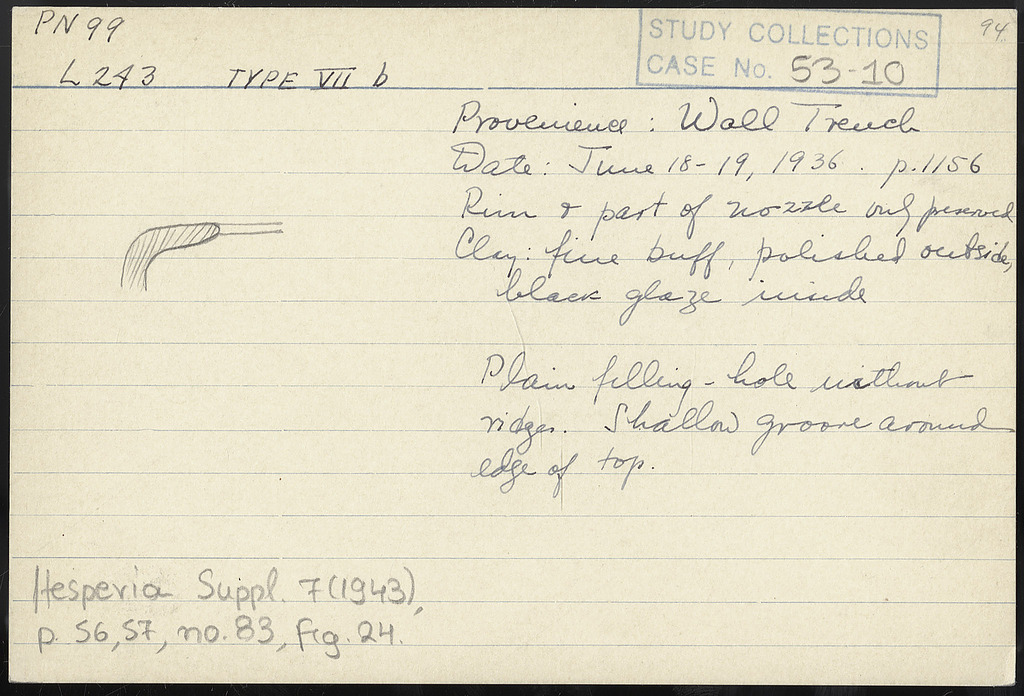 PN 99
94
STUDY COLLECTIONS
CASE No. 53-10
L 243 TYPE VII b
Provenience : Wall Trench
Date: June 18-19, 1936. p. 1156
Rim & part of nozzle only preserved
Clay: fine buff, polished outside,
black glaze inside
Plain filling-hole without
ridges. Shallow groove around
edge of top.
Hesperia Suppl. 7 (1943),
p. 56, 57, no. 83, fig. 24.